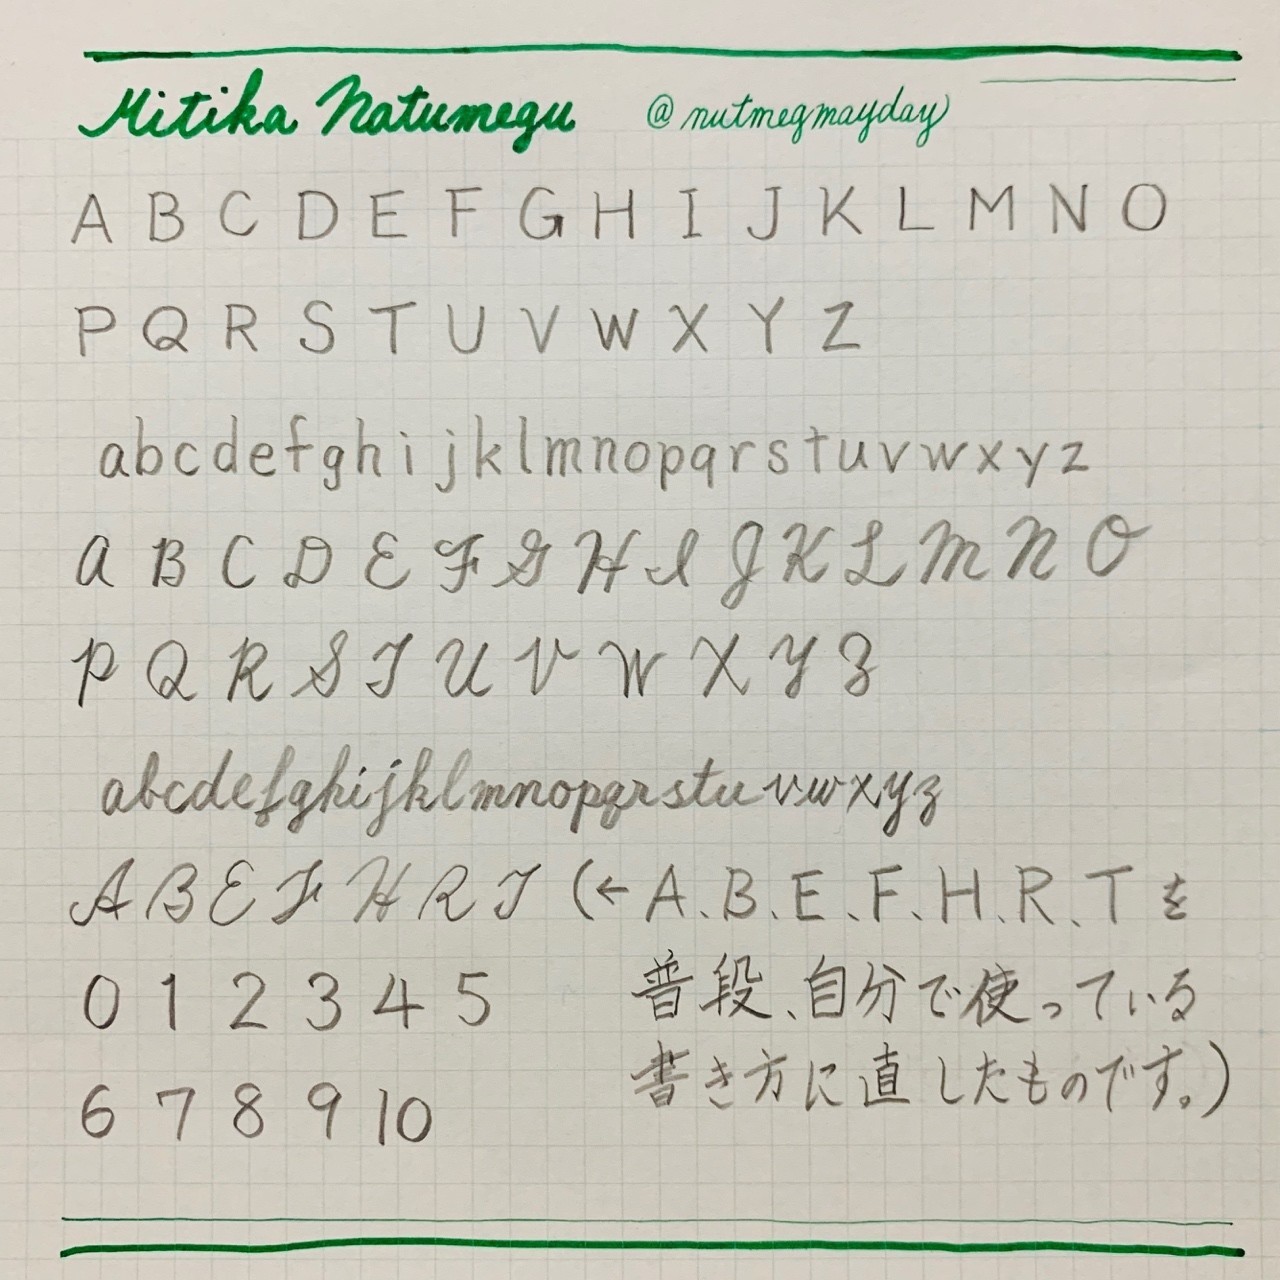 Mitika Natumegu @nutmegmayday
A B C D E F G H I J K L M N O
P Q R S T U V W X Y Z
a b c d e f g h i j k l m n o p q r s t u v w x y z
A B C D E F G H I J K L M N O
P Q R S T U V W X Y Z
abcdefghijklmnopqrstuvwxyz
A B E F H R T (←A、B、E、F、H、R、T を
0 1 2 3 4 5 普段、自分で使っている
6 7 8 9 10 書き方に直したものです。)